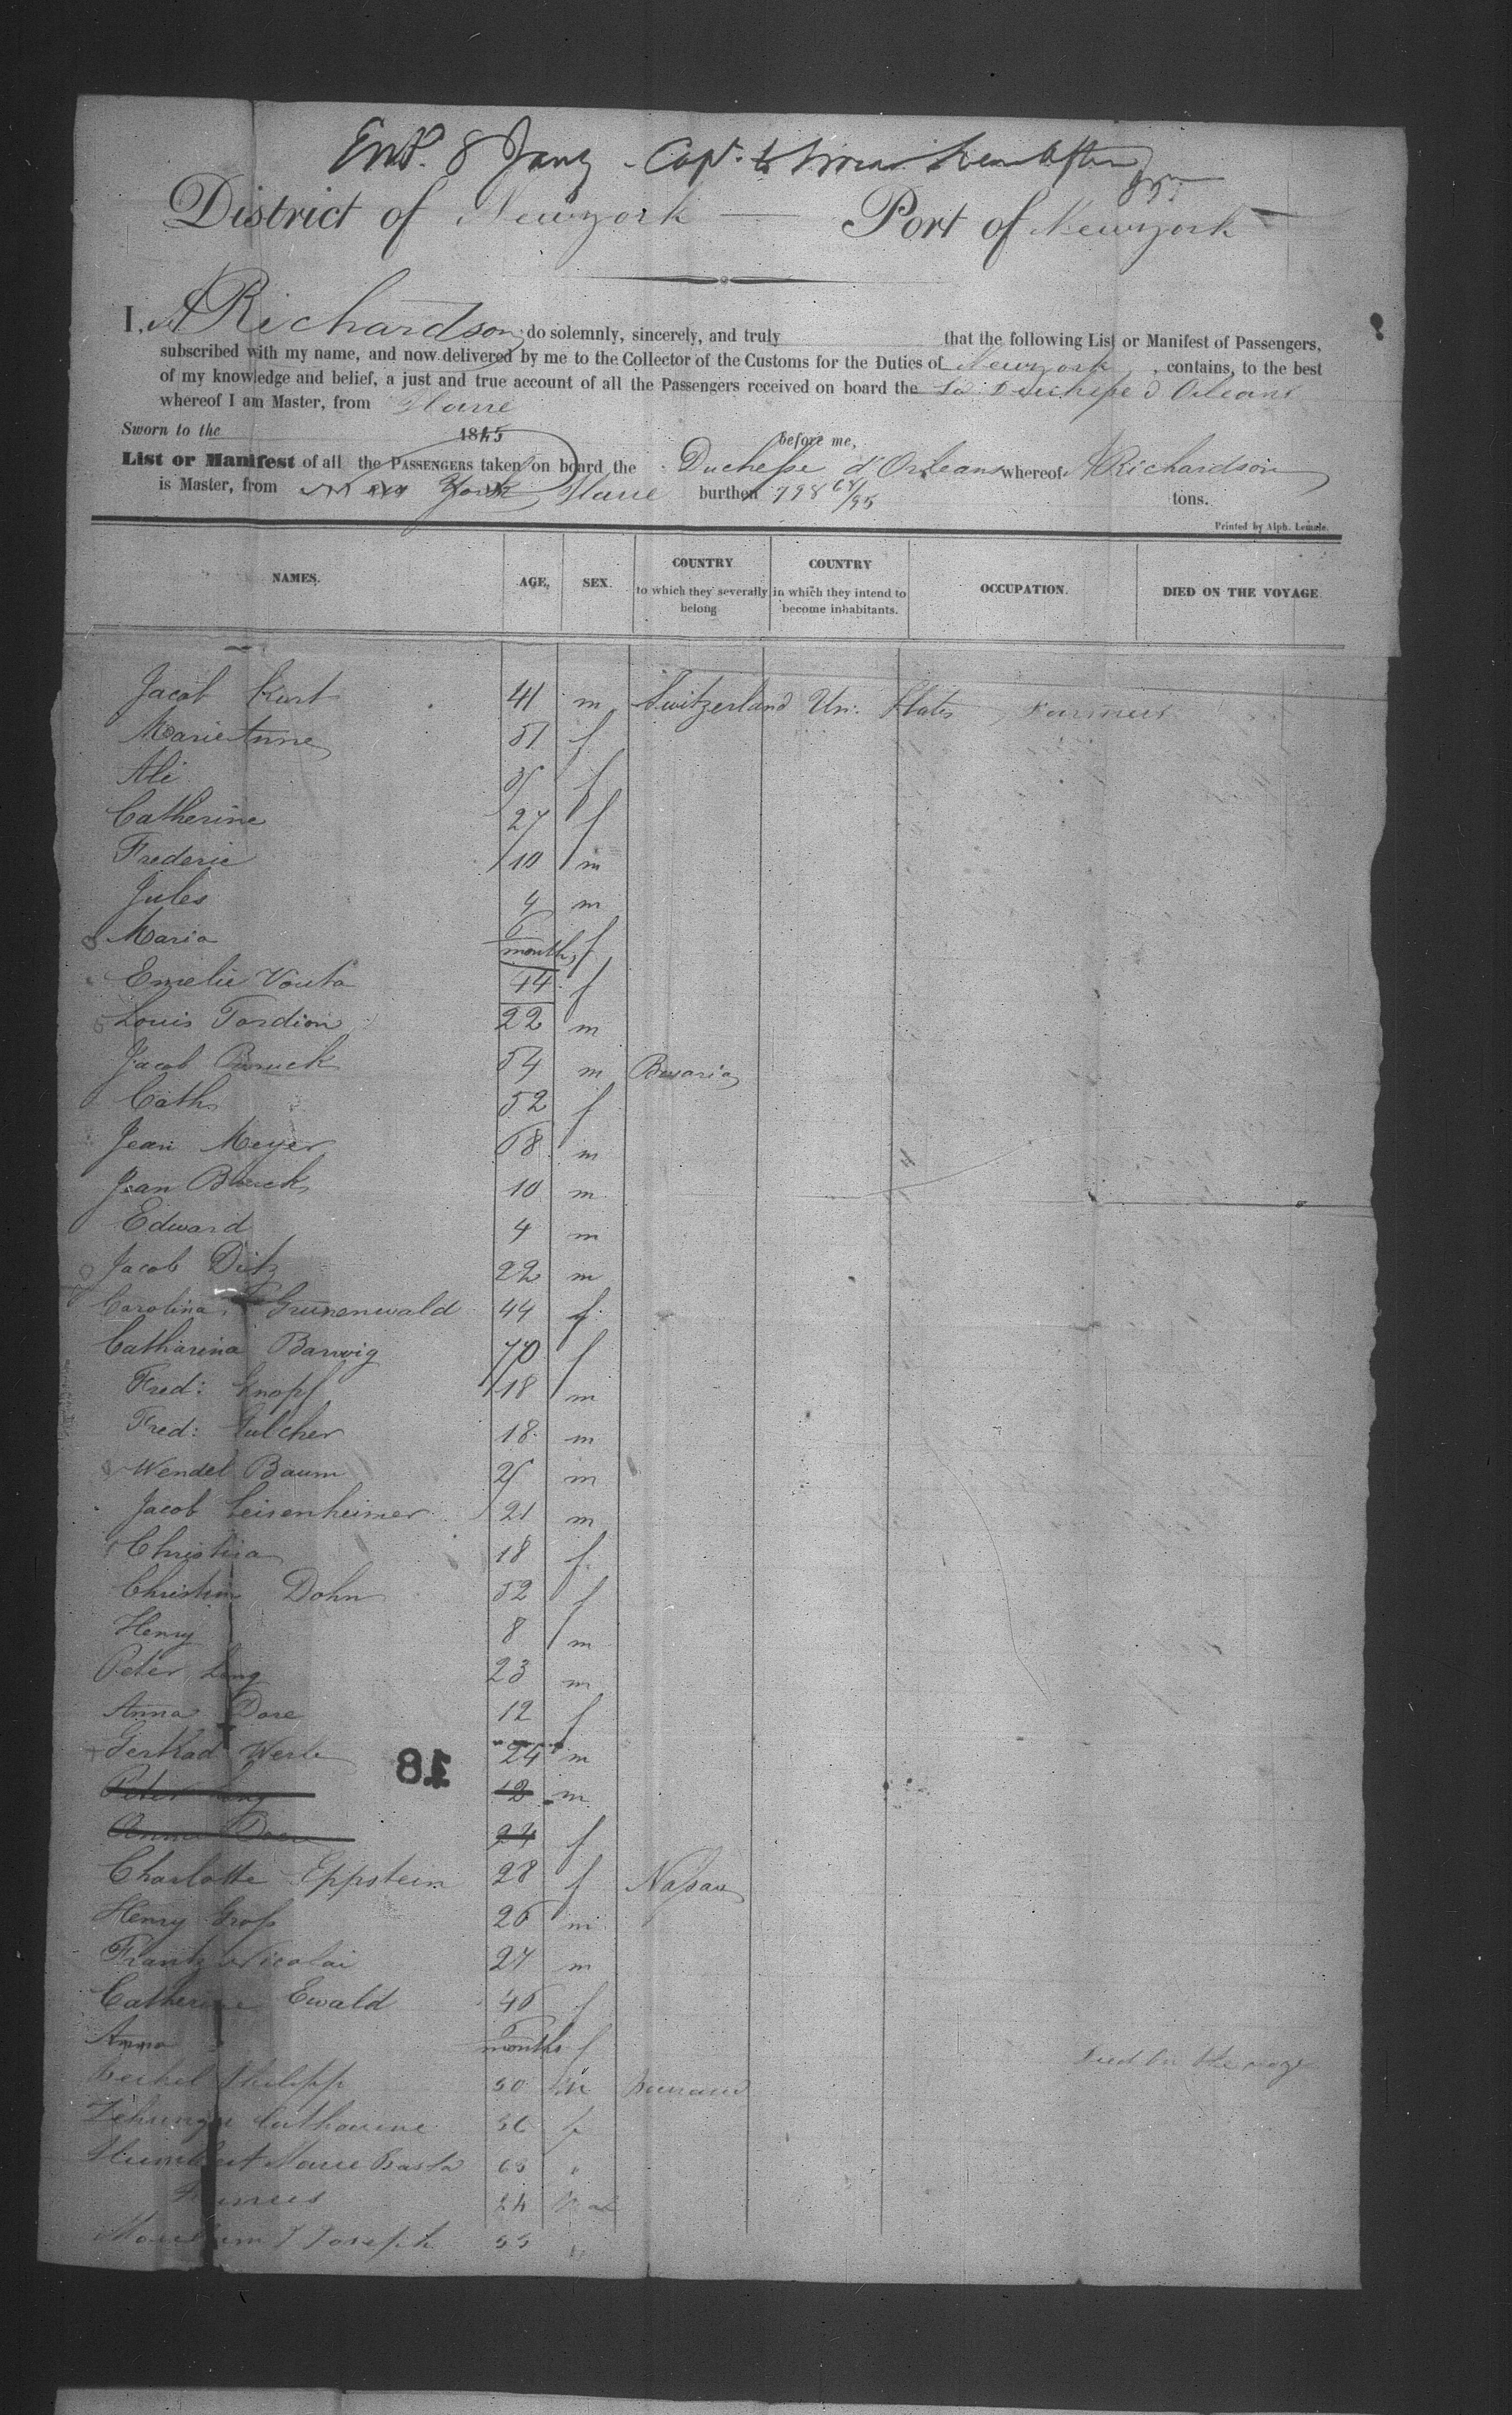 Ent. 8 Jany Capt. to
District of Newyork Port of Newyork
I, A Richardson do solemnly, sincerely, and truly that the following List or Manifest of Passengers,
subscribed with my name, and now delivered by me to the Collector of the Customs for the Duties of Newyork, contains, to the best
of my knowledge and belief, a just and true account of all the Passengers received on board the La Duchesse d Orleans
whereof I am Master, from Havre
Sworn to the 1845 before me,
List or Manifest of all the PASSENGERS taken on board the Duchesse d'Orleans whereof A Richardson
is Master, from New York Havre burthen 798 68/95 tons.
Printed by Alph. Lemale.
NAMES. AGE. SEX. COUNTRY to which they severally belong COUNTRY in which they intend to become inhabitants. OCCUPATION. DIED ON THE VOYAGE.
Jacob Kurt 41 m Switzerland Un: States Farmer
Marie Anne 51 f
f
Catherine 27 f
Frederic 10 m
Jules 4 m
Maria 6 months f
Emelie Vouta 44 f
Louis Tardion 22 m
Jacob 54 m Bavaria
Cath 52 f
Jean Meyer 68 m
Jean 10 m
Edward 4 m
Jacob Ditz 22 m
Carolina Grunenwald 44 f
Catharina Barwig 70 f
Fred: Knopf 18 m
Fred: 18 m
Wendel Baum 25 m
Jacob Leisenheimer 21 m
Christina 18 f
Christin Dohn 52 f
Henry 8 m
Peter Lang 23 m
Anna Dore 12 f
Werle 24 m
18
Peter Lang 12 m
Anna 24 f
Charlotte Eppstein 28 f Nassau
Henry Gross 26 m
Frantz Nicolai 27 m
Catherine Ewald 46 f
Anna 6 months f Died on the voyge
Philipp 50 m
Catharine 56 f
Marie 63 "
24
Joseph 55 "